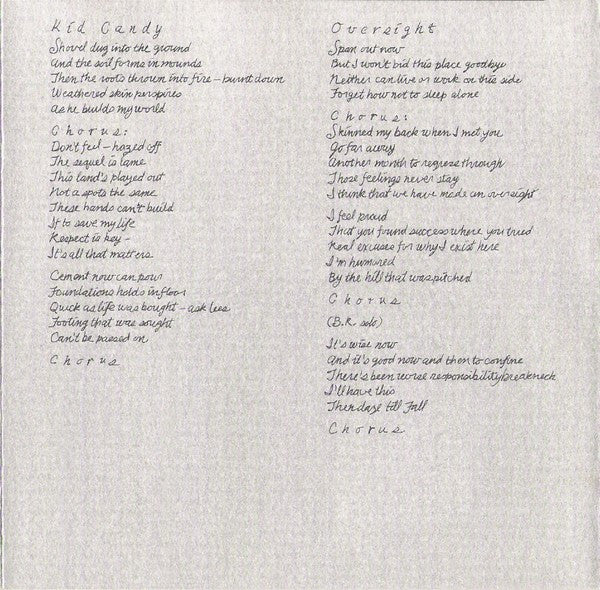 Kid Candy
Shovel dug into the ground
And the soil forms in mounds
Then the roots thrown into fire - burnt down
Weathered skin perspires
As he builds my world
Chorus:
Don't feel - hazed off
The sequel is lame
This land's played out
Not a spots the same
These hands can't build
If to save my life
Respect is key -
It's all that matters
Cement now can pour
Foundations holds in floor
Quick as life was bought - ask less
Footing that was sought
Can't be passed on
Chorus
Oversight
Span out now
But I won't bid this place goodbye
Neither can live or work on this side
Forget how not to sleep alone
Chorus:
Skinned my back when I met you
Go far away
Another month to regress through
Those feelings never stay
I think that we have made an oversight
I feel proud
That you found success where you tried
Real excuses for why I exist here
I'm humored
By the hill that was pitched
Chorus
(B.R. solo)
It's wise now
And it's good now and then to confine
There's been worse responsibility breakneck
I'll have this
Then daze till Fall
Chorus